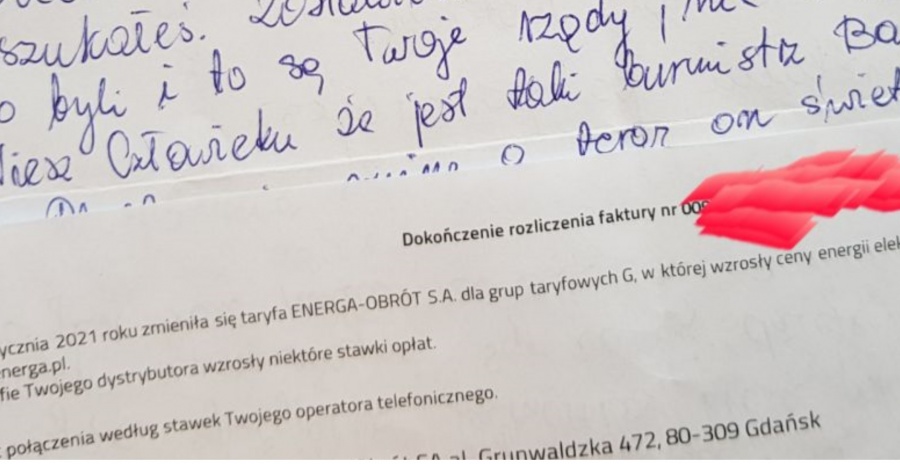 szukałeś.
Twoje rządy, nie
o byli i to są
jest taki burmistrz Ba
Wiesz Człowieku że
o teror on świet
Dokończenie rozliczenia faktury nr 009
ycznia 2021 roku zmieniła się taryfa ENERGA-OBRÓT S.A. dla grup taryfowych G, w której wzrosły ceny energii elek
nerga.pl.
fie Twojego dystrybutora wzrosły niektóre stawki opłat.
połączenia według stawek Twojego operatora telefonicznego.
SA al. Grunwaldzka 472, 80-309 Gdańsk